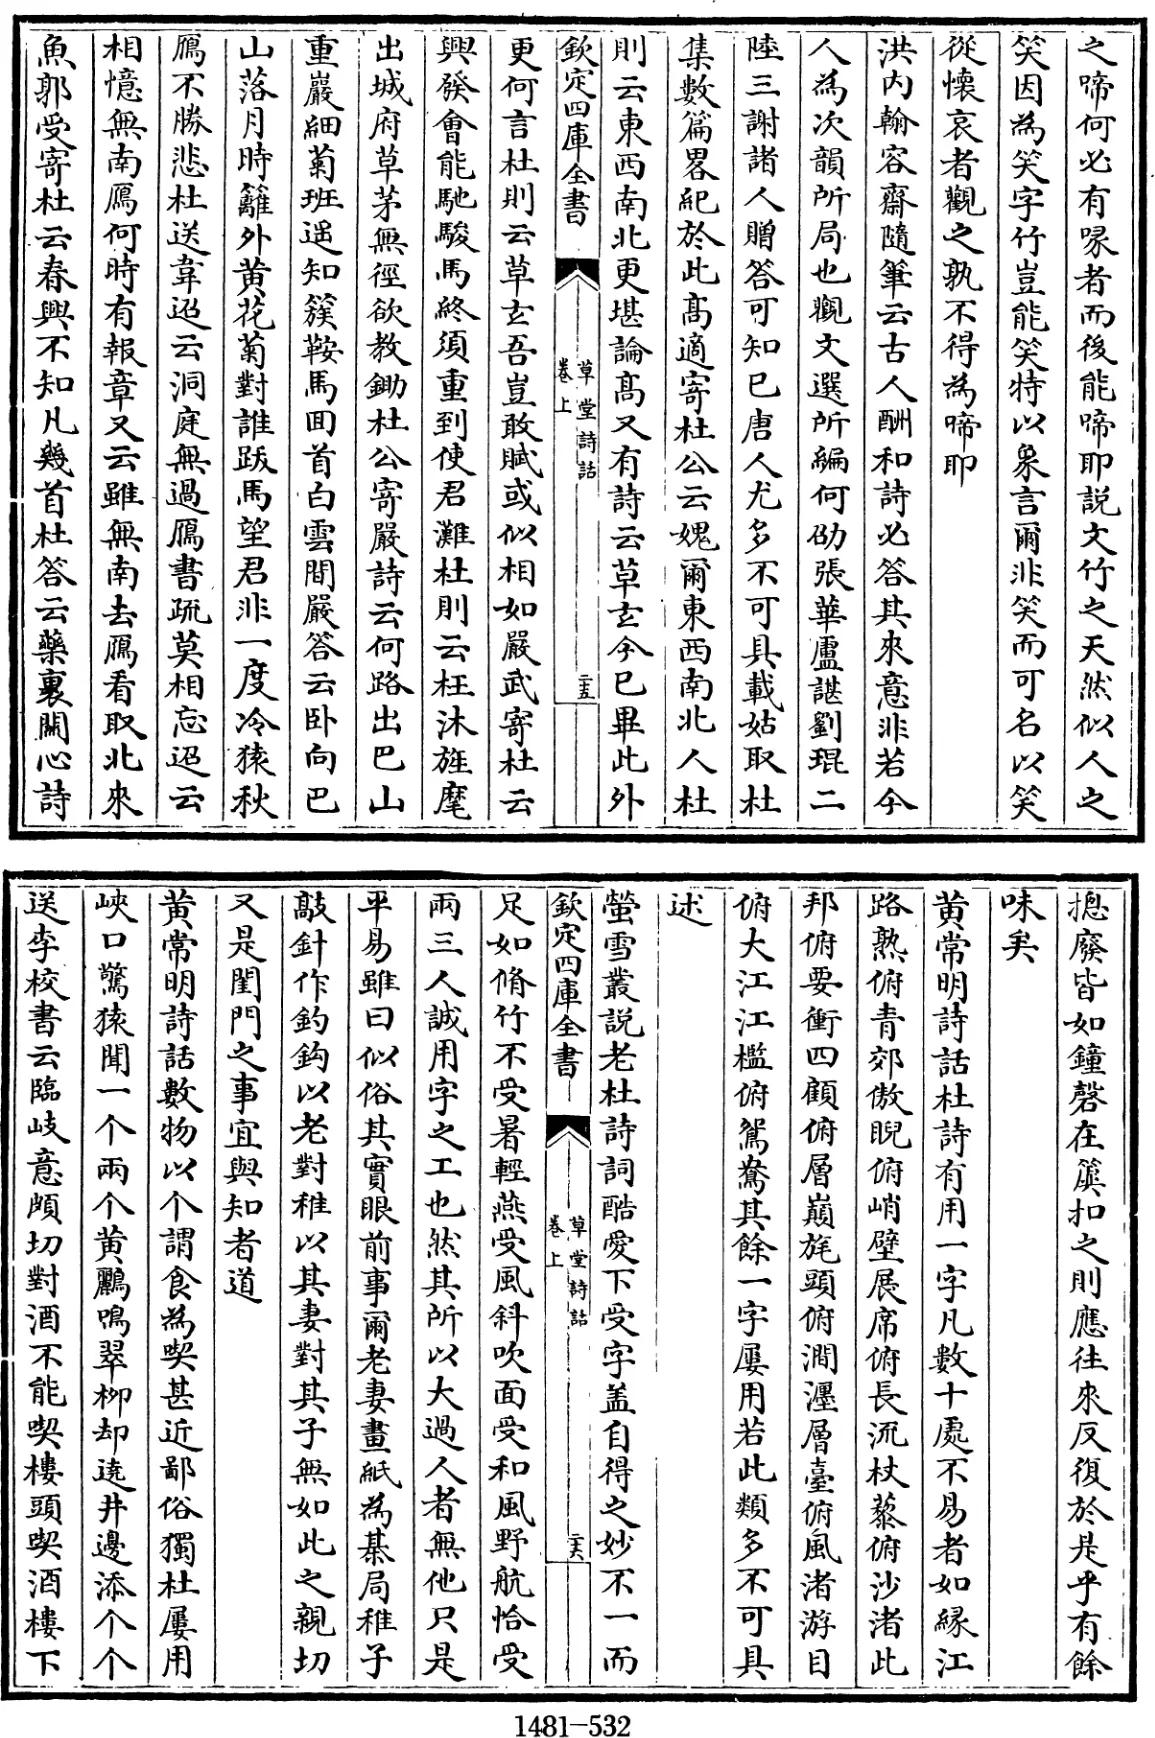 之啼何必有喙者而後能啼耶説文竹之夭然似人之
笑因為笑字竹豈能笑特以象言爾非笑而可名以笑
從懷哀者觀之孰不得為啼耶
洪内翰容齋隨筆云古人酬和詩必答其來意非若今
人為次韻所局也觀文選所編何劭張華盧諶劉琨二
陸三謝諸人贈答可知已唐人尤多不可具載姑取杜
集數篇畧紀於此高適寄杜公云媿爾東西南北人杜
則云東西南北更堪論高又有詩云草玄今已畢此外
欽定四庫全書
草堂詩話
卷上
二五
更何言杜則云草玄吾豈敢賦或似相如嚴武寄杜云
興發會能馳駿馬終須重到使君灘杜則云枉沐旌麾
出城府草茅無徑欲教鋤杜公寄嚴詩云何路出巴山
重巖細菊班遥知簇鞍馬囬首白雲間嚴答云卧向巴
山落月時籬外黄花菊對誰跋馬望君非一度冷猿秋
鴈不勝悲杜送韋迢云洞庭無過鴈書疏莫相忘迢云
相憶無南鴈何時有報章又云雖無南去鴈看取北來
魚郭受寄杜云春興不知凡幾首杜答云藥裹關心詩
揔廢皆如鐘磬在簴扣之則應往來反復於是乎有餘
味矣
黄常明詩話杜詩有用一字凡數十處不易者如緣江
路熟俯青郊傲睨俯峭壁展席俯長流杖藜俯沙渚此
邦俯要衝四顧俯層巔旄頭俯澗瀍層臺俯風渚游目
俯大江江檻俯鴛鴦其餘一字屢用若此類多不可具
述
螢雪叢説老杜詩詞酷愛下受字盖自得之妙不一而
欽定四庫全書
草堂詩話
卷上
二六
足如脩竹不受暑輕燕受風斜吹面受和風野航恰受
兩三人誠用字之工也然其所以大過人者無他只是
平易雖曰似俗其實眼前事爾老妻畫紙為棊局稚子
敲針作釣鈎以老對稚以其妻對其子無如此之親切
又是閨門之事宜與知者道
黄常明詩話數物以个謂食為喫甚近鄙俗獨杜屢用
峽口驚猿聞一个兩个黄鸝鳴翠柳却遶井邊添个个
送李校書云臨岐意頗切對酒不能喫樓頭喫酒樓下
1481-532